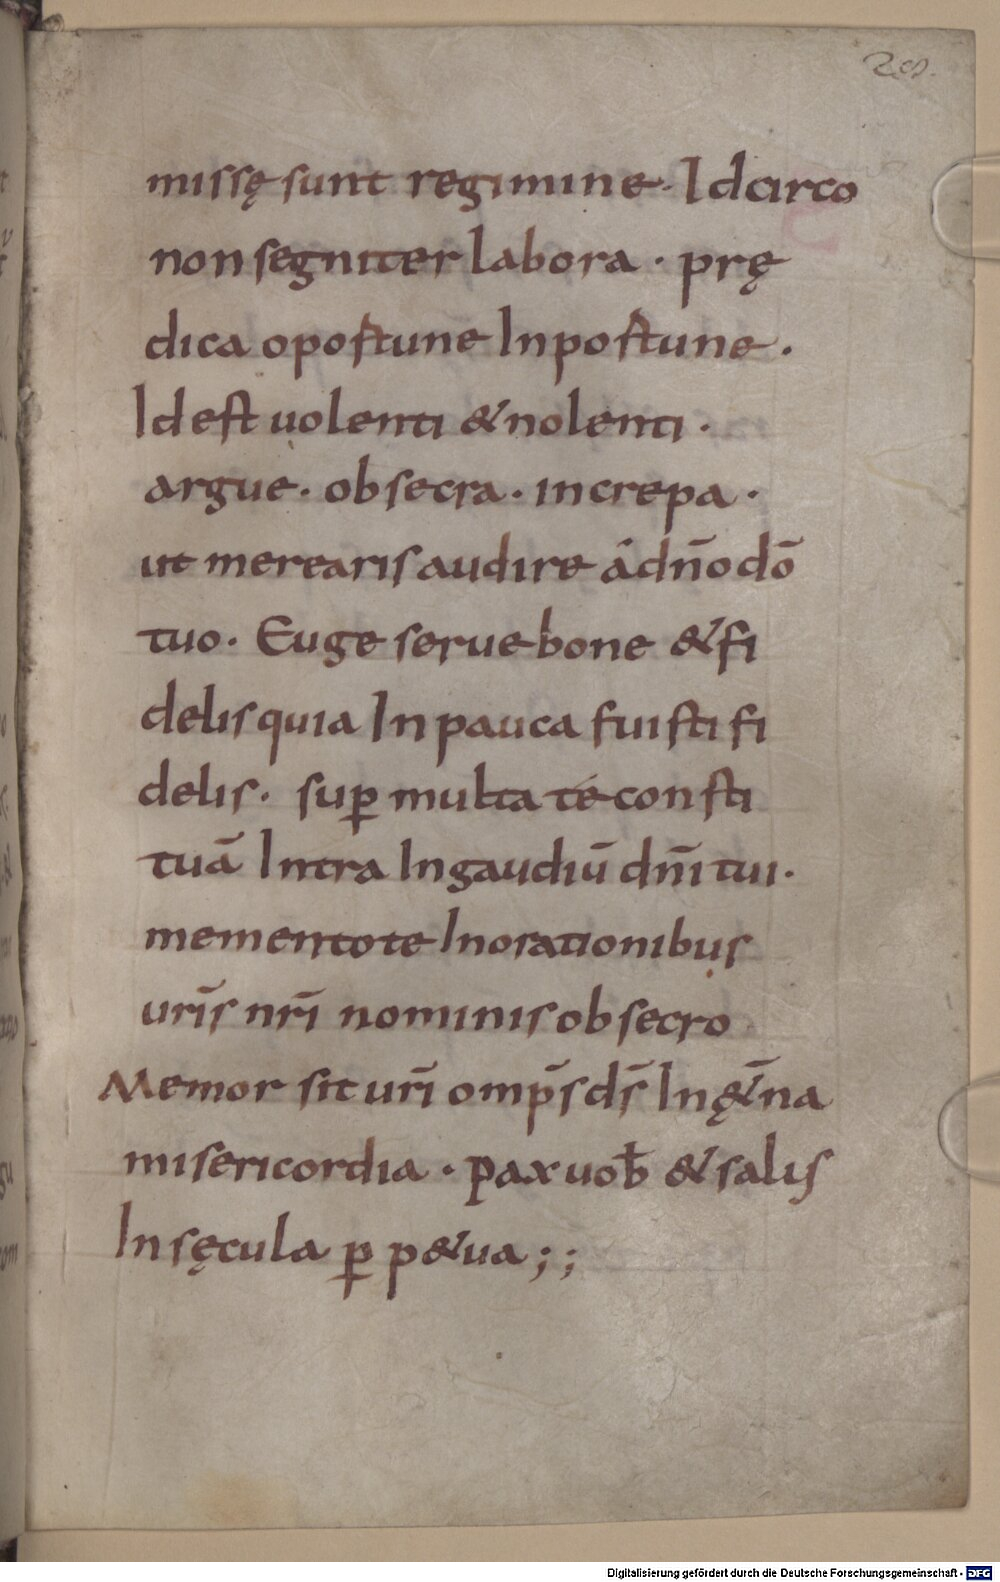 28.
missę sunt regimine. Idcirco
non segniter labora · prę
dica oportune Inportune ·
Id est uolenti & nolenti ·
argue · obsecra · increpa ·
ut merearis audire á dn̄o dō
tuo · Euge serue bone & fi
delis quia In pauca fuisti fi
delis · suꝑ multa té consti
tuā Intra In gaudiū dn̄i tui ·
mementote In orationibus
ur̄is nr̄i nominis obsecro
Memor sit ur̄i omp̄s ds̄ In ę&̄na
misericordia · pax uob̄ & salus
In sęcula ꝑ p&ua ; ;
Digitalisierung gefördert durch die Deutsche Forschungsgemeinschaft - DFG